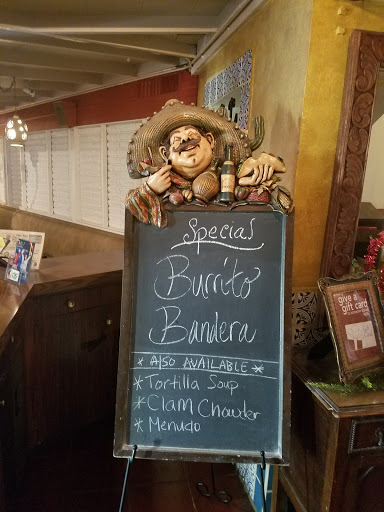 Special
Burrito
Bandera
* Also Available *
* Tortilla Soup
* Clam Chowder
* Menudo
give a
gift card